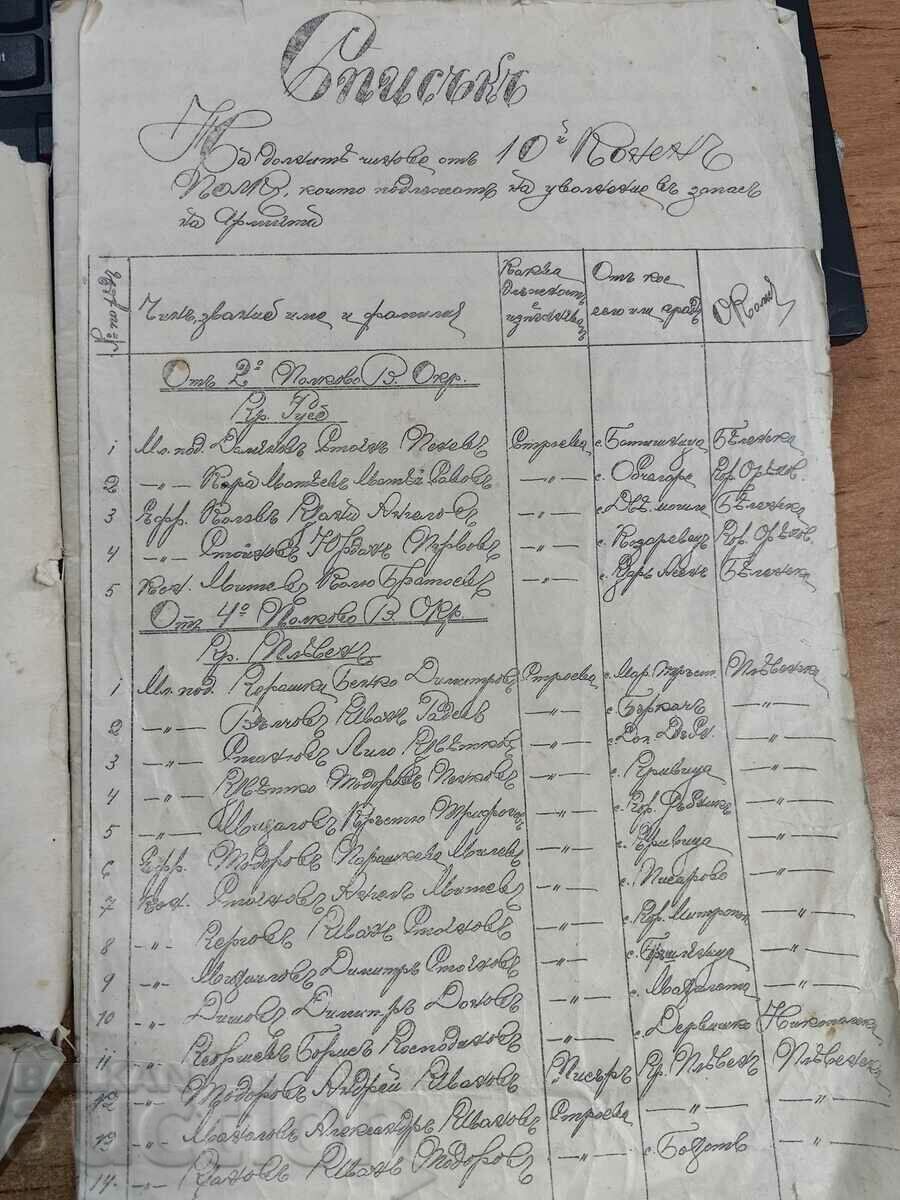 Списъкъ
На долнитѣ чинове отъ 10й Коненъ
полк, които подлѣжатъ на уволнение въ запасъ
на Армията
Чинъ, звание име и фамилия Каква длъжность е изпълнявал Отъ кое село или градъ Окол.
Отъ 2о Полково В. Окр.
Гр. Русе
1 Мл. под. Стоянъ Пеневъ Строева с. Батишница Бѣленска
2 —〃— Кара Матѣевъ Матѣй —〃— с. Обнова Гор. Орѣхов.
3 Ефр. Ангеловъ —〃— с. Двѣ могили Бѣленска
4 —〃— Стойковъ Юрданъ Първовъ —〃— с. Козаревец Гор. Орѣхов.
5 Кон. Митевъ Колю Братоевъ —〃— с. Царь Асенъ Бѣленска
Отъ 4о Полково В. Окр.
Гр. Плѣвенъ
1 Мл. под. Бенко Димитровъ Строева с. Мар. Тръст. Плѣвенска
2 —〃— Вълчовъ Иванъ —〃— с. Бъркачъ —〃—
3 —〃— Лило Цвѣтковъ —〃— с. Дол. Дѫб. —〃—
4 —〃— Цвѣтко Тодоровъ Пенковъ —〃— с. Гривица —〃—
5 —〃— Михаловъ Кръстю Трифоновъ —〃— с. Гор. Дѫбникъ —〃—
6 Ефр. Тодоровъ Парашкевъ Милевъ —〃— с. Гривица —〃—
7 Кон. Стояновъ Ангелъ Митевъ —〃— с. Писарово —〃—
8 —〃— Герговъ Иванъ Стояновъ —〃— с. Гор. Митропол. —〃—
9 —〃— Михаиловъ Димитръ Стояновъ —〃— с. Бръшляница —〃—
10 —〃— Дишовъ Димитръ Доковъ —〃— с. Махалата —〃—
11 —〃— Георгиевъ Борисъ Господиновъ —〃— с. Дервишко Никополска
12 —〃— Тодоровъ Андрей Ивановъ Писаръ Гр. Плѣвенъ Плѣвенска
13 —〃— Маноловъ Александръ Ивановъ Строева —〃— —〃—
14. —〃— Цаковъ Иванъ Тодоровъ —〃— с. —〃—